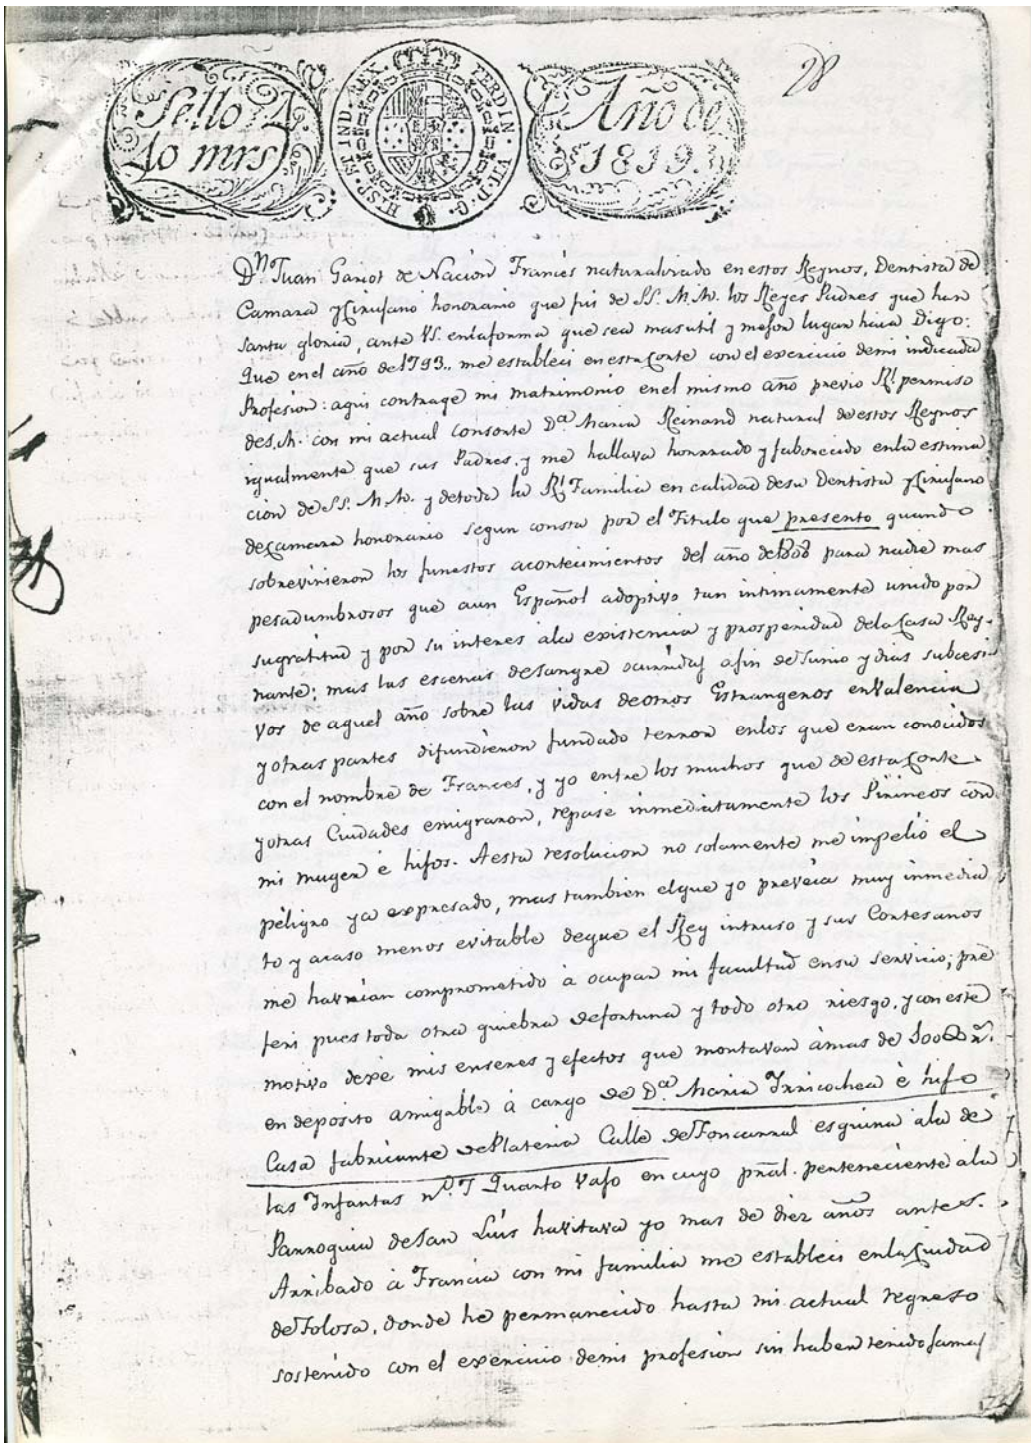 28
Sello 4º
40 mrs
HISP. ET IND. REX. FERDIN. VII. D. G.
Año de
1819.
Dn. Juan Gariot de Nacion Francés naturalizado en estos Reynos, Dentista de
Camara y Cirujano honorario que fui de SS. M.M. los Reyes Padres que han
santa gloria, ante VS. enlaforma que sea mas util y mejor lugar haia Digo:
Que en el año de 1793., me estableci en esta Corte con el exercicio demi indicada
Profesion: aqui contrage mi matrimonio en el mismo año previo Rl. permiso
de S.M. con mi actual consorte Da. Maria Reinand natural de estos Reynos
igualmente que sus Padres, y me hallava honrrado y faborecido enla estima
cion de SS. M.M. y detoda la Rl. Familia en calidad desu Dentista y Cirujano
deCamara honorario segun consta por el Titulo que presento quando
sobrevinieron los funestos acontecimientos del año de 1808 para nadie mas
pesadumbrosos que aun Español adoptivo tan intimamente unido por
sugratitud y por su interes ala existencia y prosperidad dela Casa Rey-
nante; mas las escenas desangre ocurridas afin deJunio y dias subcesi
vos de aquel año sobre las vidas deotros Estrangeros enValencia
y otras partes difundieron fundado terror enlos que eran conocidos
con el nombre de Frances, y yo entre los muchos que de esta Corte
y otras Ciudades emigraron, repasé inmediatamente los Pirineos con
mi muger é hijos. Aesta resolucion no solamente me impelió el
peligro ya expresado, mas tambien elque yo preveia muy inmedia
to y acaso menos evitable deque el Rey intruso y sus Cortesanos
me havrian comprometido à ocupar mi facultad ensu servicio; pre
feri pues toda otra quiebra defortuna y todo otro riesgo, y con este
motivo dexé mis enseres y efectos que montavan àmas de rn.
en deposito amigable à cargo de Da. Maria Irricochea è hijo
Casa fabricante dePlateria Calle deFoncarral esquina ala de
las Infantas no. 1 Quarto vajo en cuyo pral. perteneciente ala
Parroquia deSan Luis havitava yo mas de diez años antes.
Arribado à Francia con mi familia me estableci enla Ciudad
deTolosa, donde he permanecido hasta mi actual regreso
sostenido con el exercicio demi profesion sin haber tenido jamas